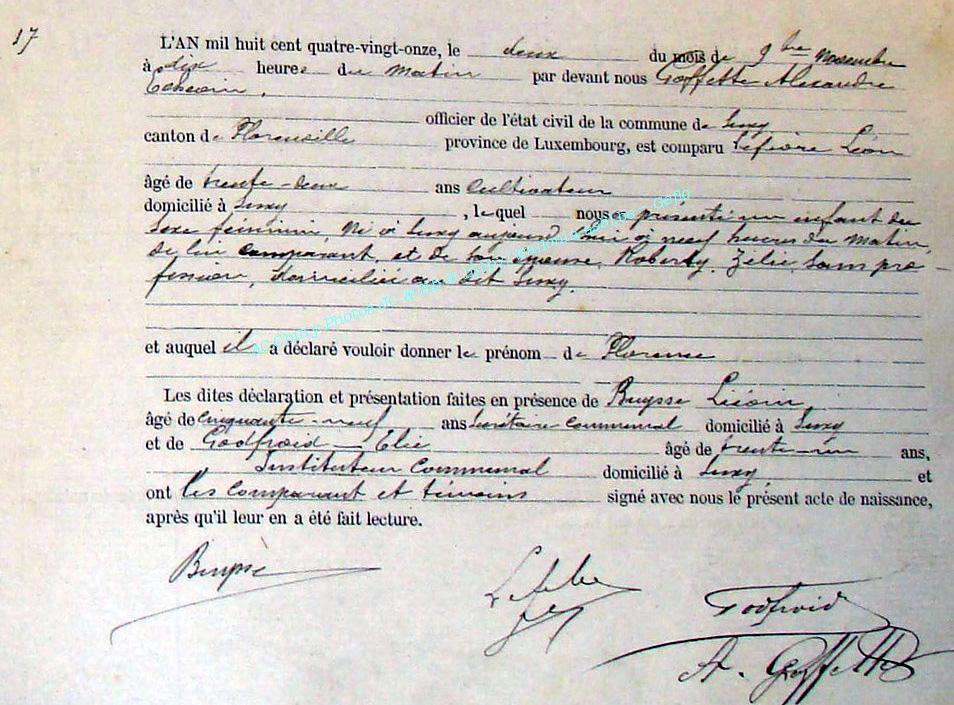 17
L'AN mil huit cent quatre-vingt-onze, le deux du mois de 9bre novembre
à dix heures du matin par devant nous Goffette Alexandre
officier de l'état civil de la commune de Suxy
canton de Florenville province de Luxembourg, est comparu Lefèvre Léon
âgé de trente-deux ans Cultivateur
domicilié à Suxy, lequel nous a présenté un enfant du
sexe féminin, né à Suxy aujourd'hui à neuf heures du matin,
de lui comparant, et de son épouse, Roberty, Zélie, sans pro-
fession, domiciliée au dit Suxy.
et auquel il a déclaré vouloir donner le prénom de Florence
Les dites déclaration et présentation faites en présence de Buysse
âgé de cinquante-neuf ans Secrétaire communal domicilié à Suxy
et de Godfroid Elie âgé de trente-un ans,
Instituteur Communal domicilié à Suxy et
ont les comparant et témoins signé avec nous le présent acte de naissance,
après qu'il leur en a été fait lecture.
Buysse
Godfroid
A. Goffette